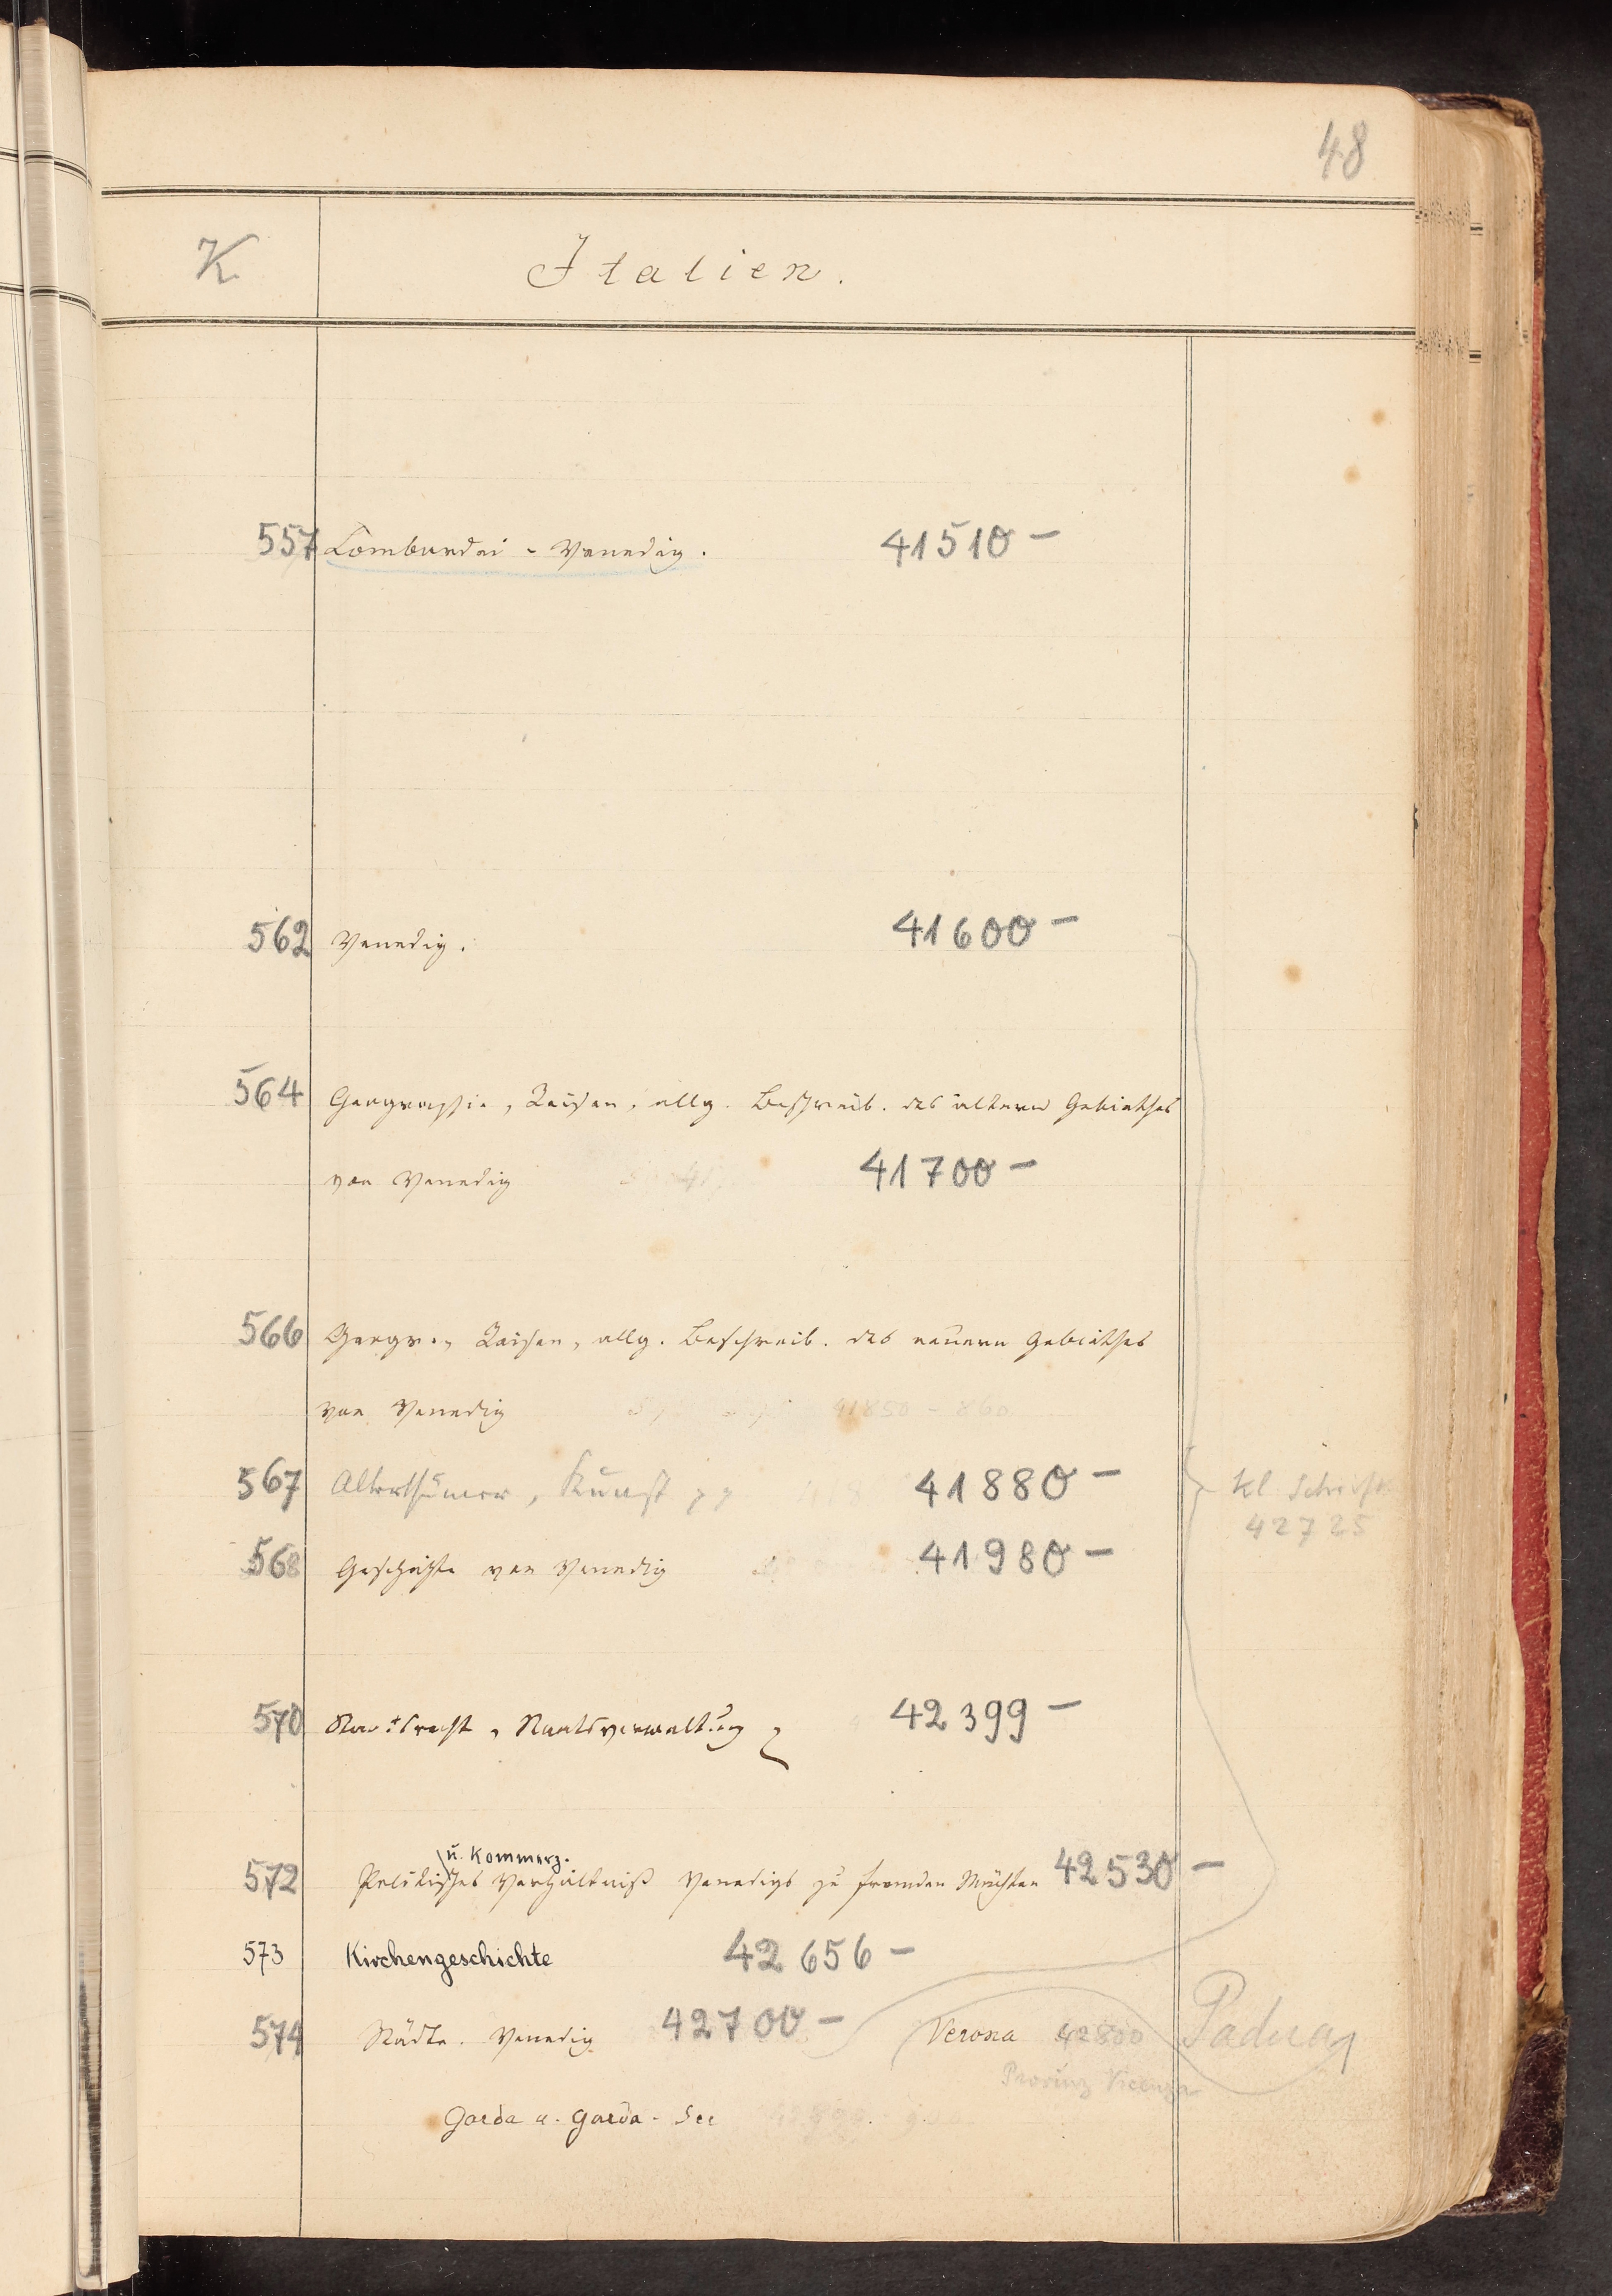 48
K Italien.
557 Lombardei - Venedig. 41510 -
562 Venedig. 41600 -
564 Geographie, Reisen, allg. Beschreib. des ältern Gebiethes
von Venedig 41700 -
566 Geogr., Reisen, allg. Beschreib. des neuern Gebiethes
von Venedig 41850 - 860
567 Alterthümer, Kunst pp 41880 -
kl. Schrift
42725
568 Geschichte von Venedig 41980 -
570 Staatsrecht, Staatsverwaltung 42399 -
u. Kommerz.
572 Politisches Verhältniß Venedigs zu fremden Mächten 42530 -
573 Kirchengeschichte 42656 -
574 Städte. Venedig 42700 - Verona 42800 Padua
Provinz Vicenza
Garda u. Garda-See